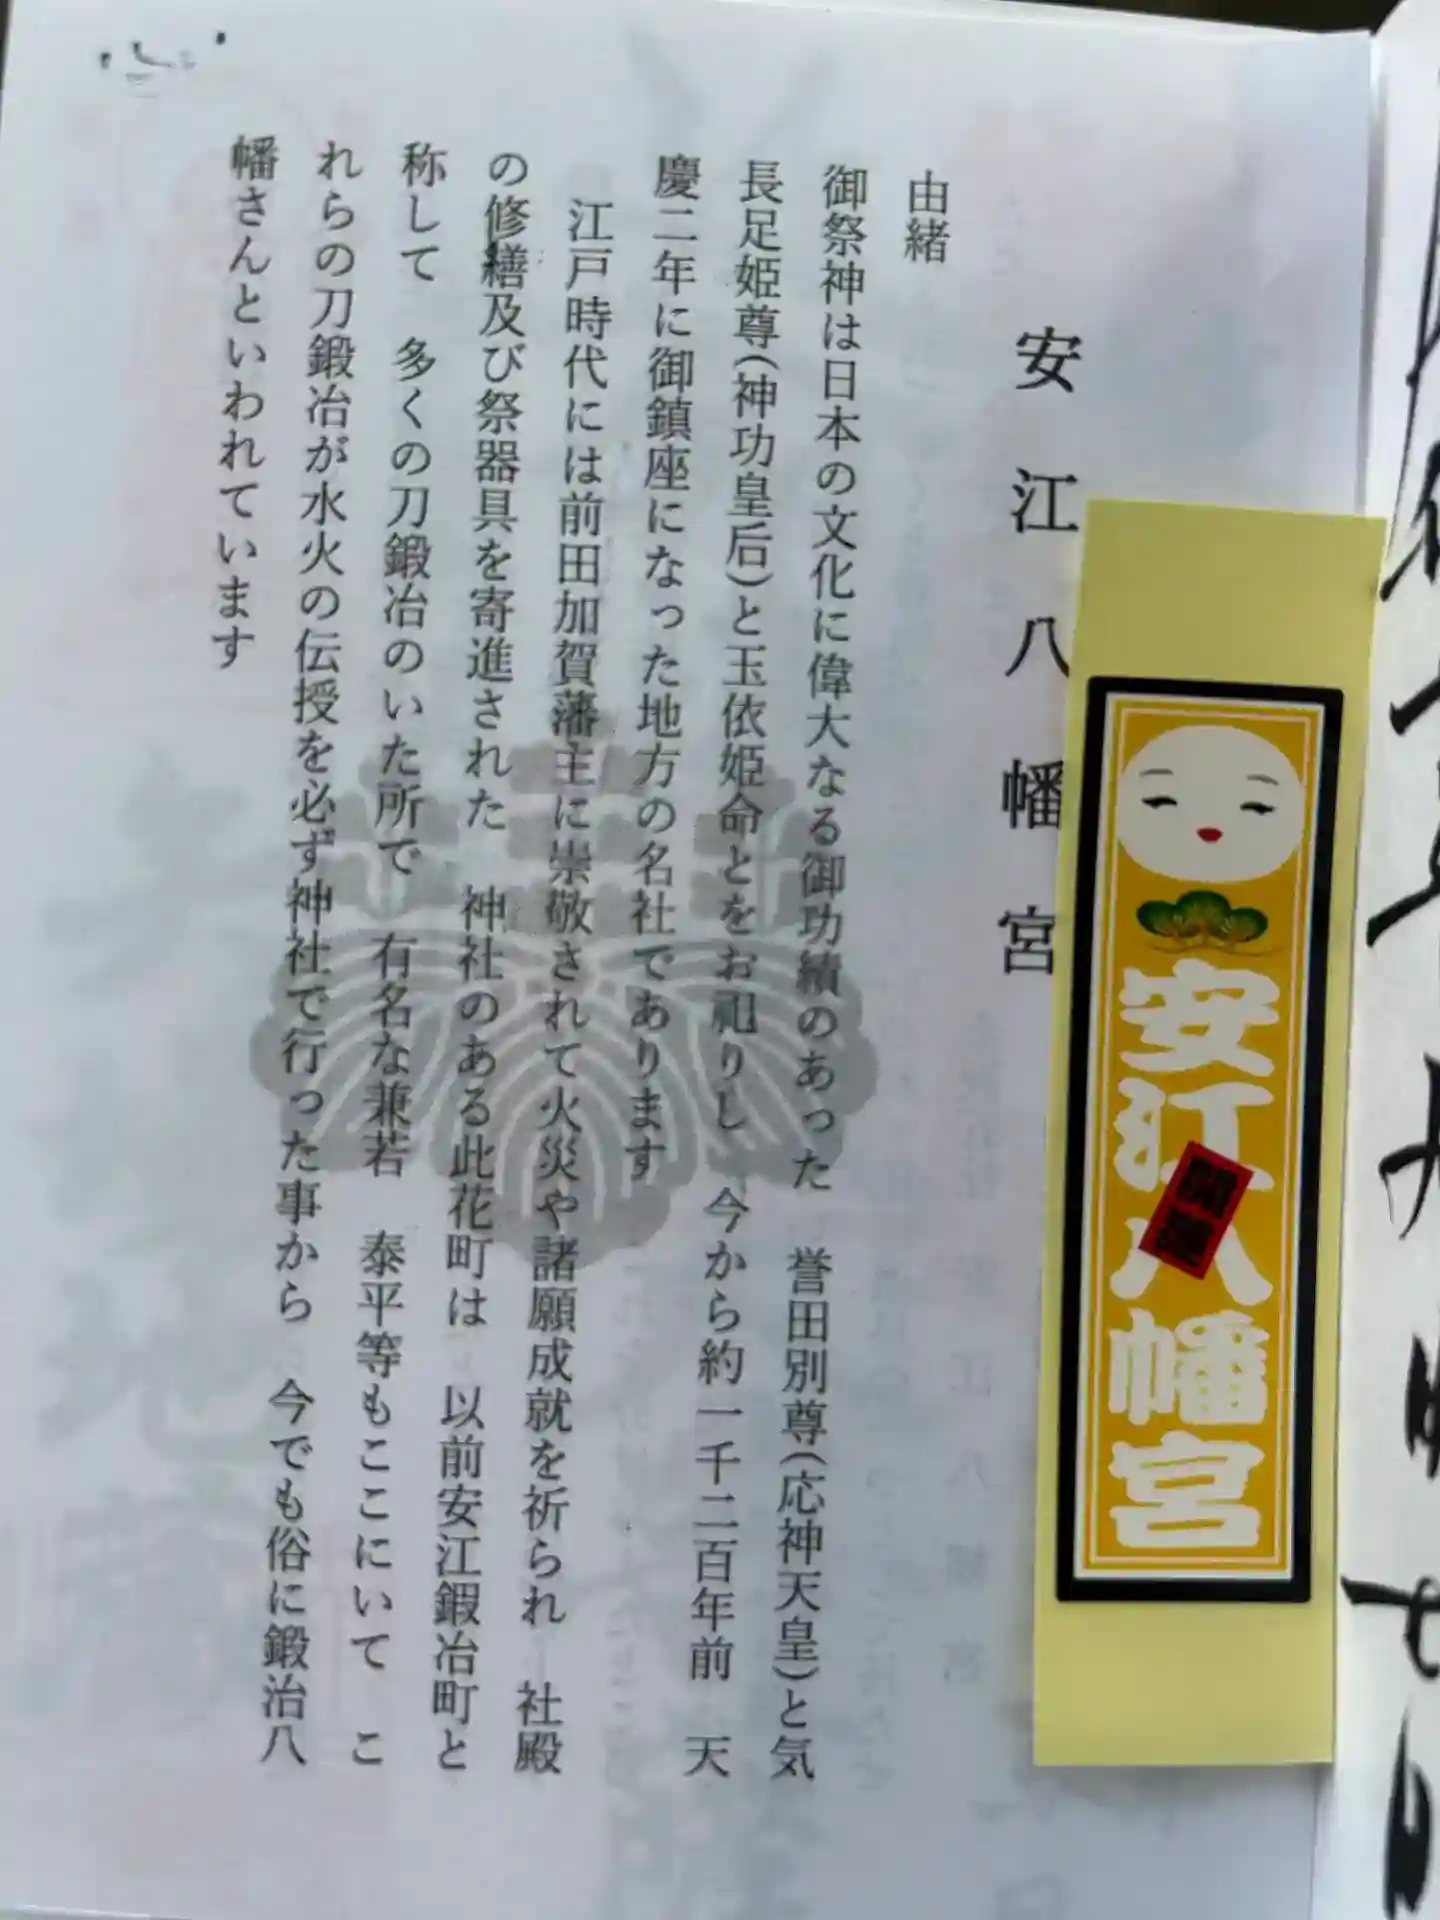 安江八幡宮
由緒
御祭神は日本の文化に偉大なる御功績のあった　誉田別尊(応神天皇)と気
長足姫尊(神功皇后)と玉依姫命とをお祀りし　今から約一千二百年前　天
慶二年に御鎮座になった地方の名社であります
江戸時代には前田加賀藩主に崇敬されて火災や諸願成就を祈られ　社殿
の修繕及び祭器具を寄進された　神社のある此花町は　以前安江鍜冶町と
称して　多くの刀鍛冶のいた所で　有名な兼若　泰平等もここにいて　こ
れらの刀鍛冶が水火の伝授を必ず神社で行った事から　今でも俗に鍛治八
幡さんといわれています
安江八幡宮
開運